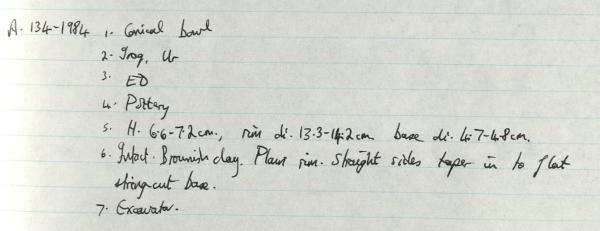 A. 134-1984 1. Conical bowl
2. Iraq, Ur
3. ED
4. Pottery
5. H. 6.6-7.2cm., rim di. 13.3-14.2cm base di. 4.7-4.8cm.
6. Intact. Brownish clay. Plain rim. Straight sides taper in to flat
string-cut base.
7. Excavator.